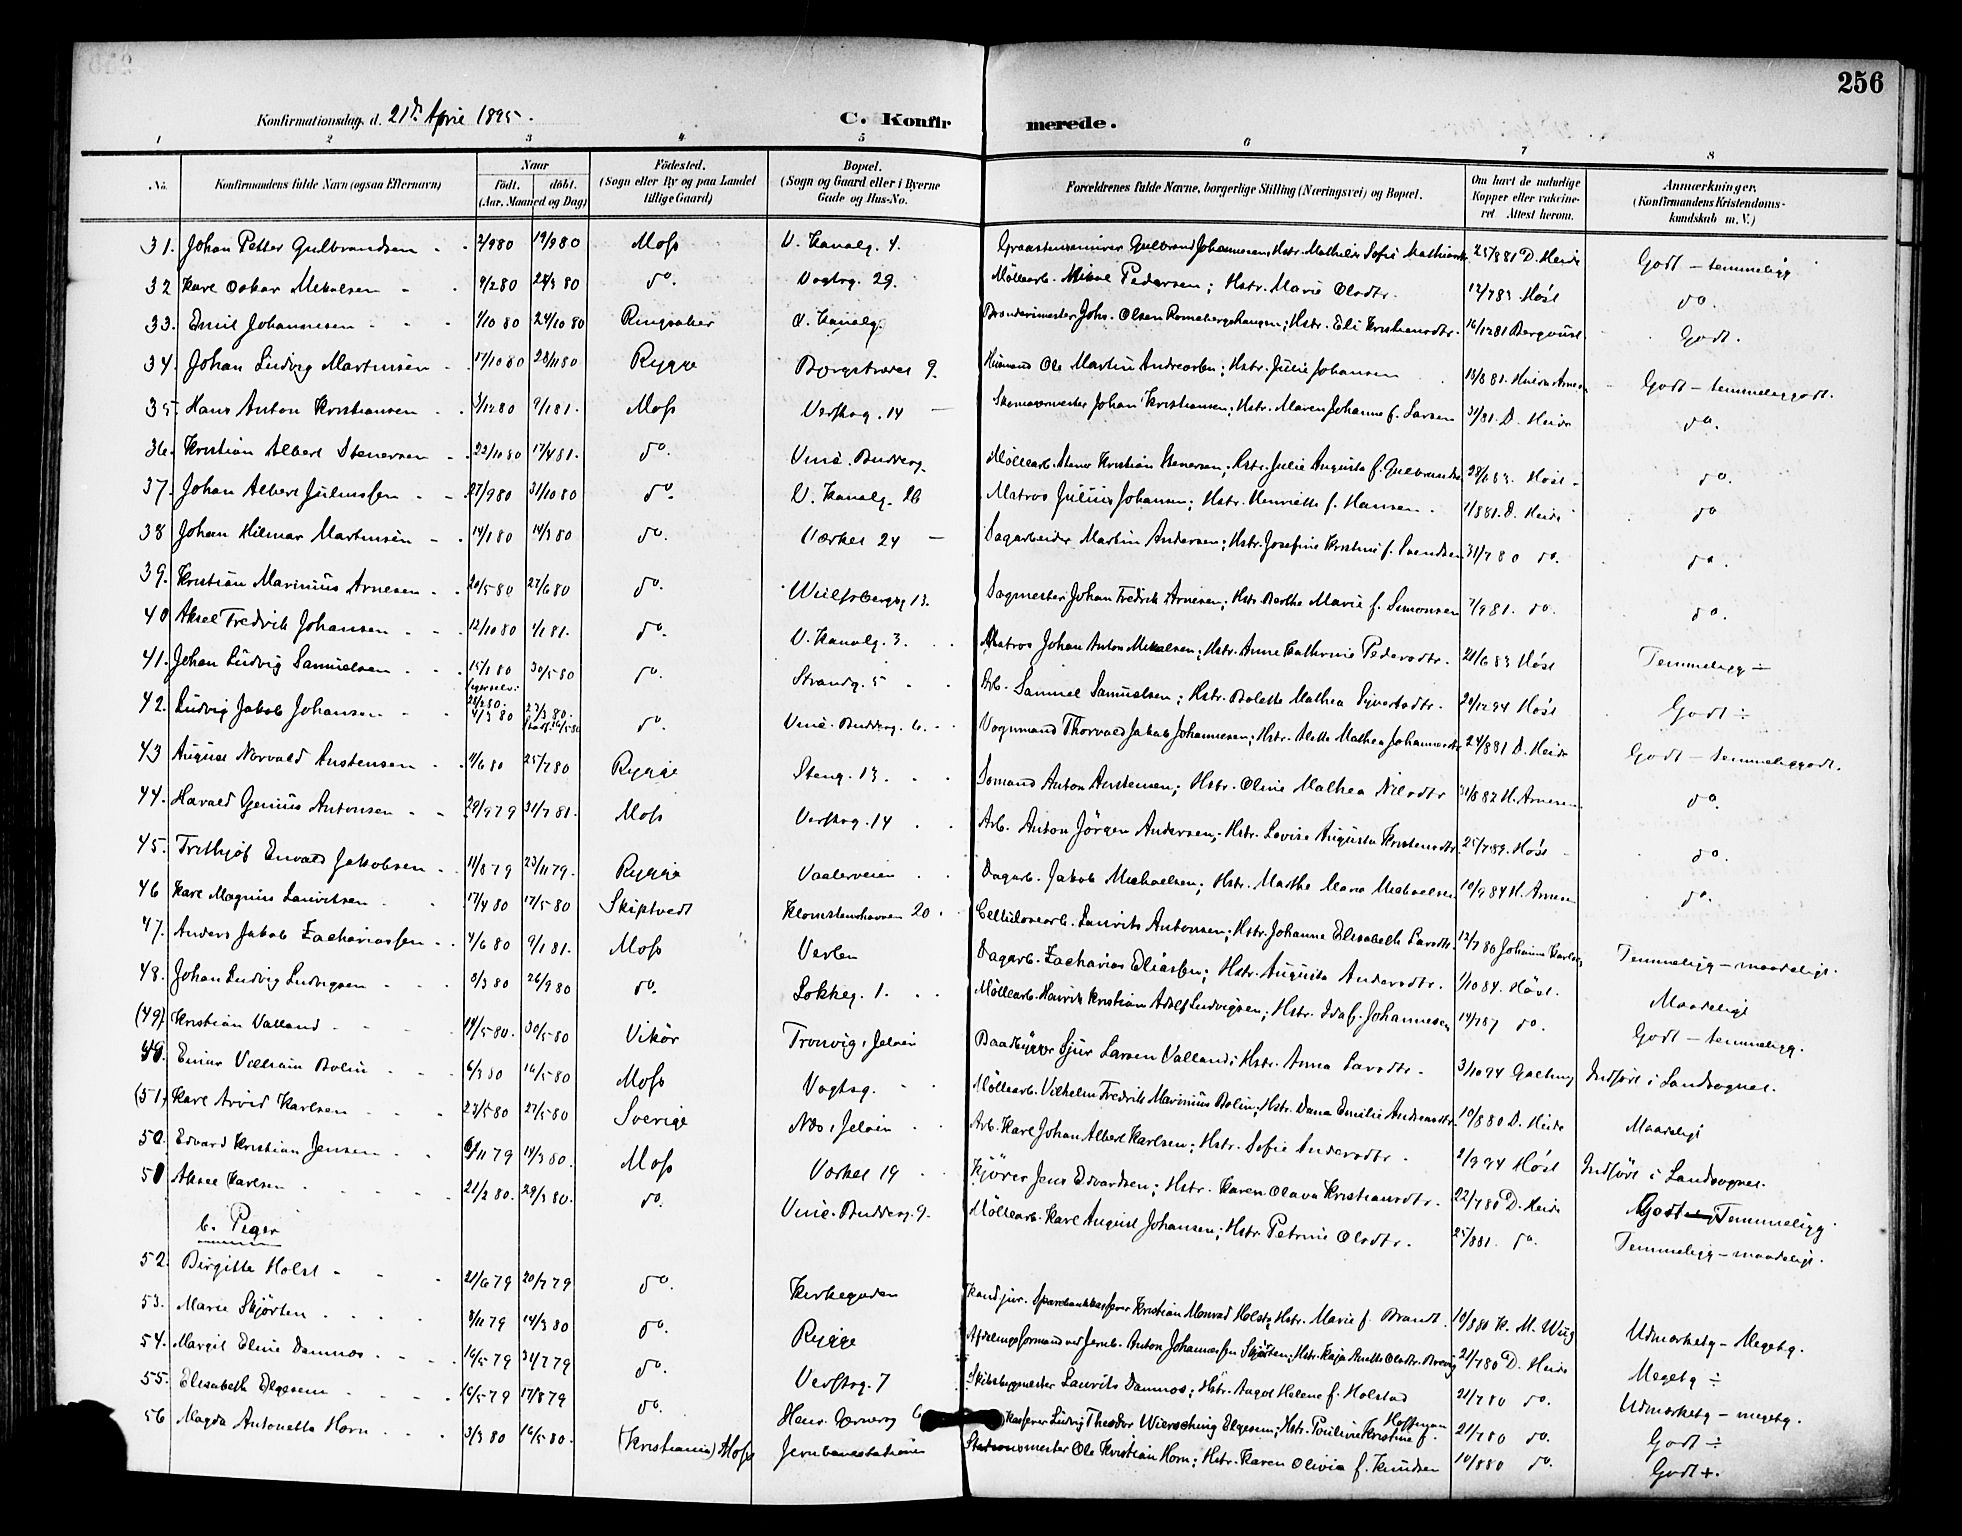 256
Konfirmationsdag d. 21de April 1895.
C. Konfirmerede.
1 2 3 4 5 6 7 8
No. Konfirmandens fulde Navn (ogsaa Efternavn) Naar født. døbt. (Aar, Maaned og Dag) Fødested. (Sogn eller By og paa Landet tillige Gaard) Bopæl. (Sogn og Gaard eller i Byerne Gade og Hus-No. Forældrenes fulde Navne, borgerlige Stilling (Næringsvei) og Bopæl. Om havt de naturlige Kopper eller vaccineret. Attest herom. Anmærkninger. (Konfirmandens Kristendomskundskab m. V.)
31. Johan Petter Gulbrandsen 2/9 80 19/9 80 Moss V. Kanalg. 4. Gulbrand Johannesen, Hstr. Mathilde Sofie 25/8 81 D. Heide Godt - temmeligg
32 Karl Oskar Mikalsen 4/2 80 28/3 80 do. Vogtsg. 29. Møllearb. Mikal Pedersen; Hstr. Marie Olsdtr. 12/7 83 Høst do.
33. Emil Johannesen 1/10 80 24/10 80 Ringsaker V. Kanalg. Johs. Olsen; Hstr. Eli Kristiansdtr. 16/12 81 Godt.
34. Johan Ludvig Martinsen 17/10 80 28/11 80 Rygge 9. Husmand Ole Martin Andreasen; Hstr. Julie Johansen 13/8 81. Godt - temmeliggodt.
35. Hans Anton Kristiansen 3/12 80 9/1 81. Moss Verftsg. 14 Skomagermester Johan Kristiansen; Hstr. Maren Johanne f. Larsen D. Heide do.
36. Kristian Albert Stenersen 22/10 80 17/4 81. do. Møllearb. Kristian Stenersen; Hstr. Julie Augusta f. Gulbrandsen Høst do.
37. Johan Albert Juliussen 27/9 80 31/10 80 do. V. Kanalg. 26 Matros Julius Johansen; Hstr. Henriette f. Hansen. 1/8 81. D. Heide do
38 Johan Hilmar Martinsen 14/1 80 14/3 80 do. Værket 24 Sagarbeider Martin Andersen; Hstr. Josefine Kristine f. Svendsen 31/7 80 do. do.
39. Kristian Marinius Arnesen 20/5 80 27/6 80 do. 13. Sagmester Johan Fredrik Arnesen; Hstr. Berthe Marie f. Simonsen 7/9 81. do. do.
40 Aksel Fredrik Johansen 12/10 80 1/1 81. do. V. Kanalg. 3. Matros Johan Anton Mikalsen; Hstr. Anne Kathrine Pedersdtr. 21/6 83 Høst Temmeligg ÷
41. Johan Ludvig Samuelsen 15/1 80 30/5 80 do. Strandg. 5 Arb. Samuel Samuelsen; Hstr. Bolette Mathea Syvertsdtr. Høst Godt ÷
42. Ludvig Jakob Johansen 4/3 80 do. 6. Vognmand Thorvald Jakob Johannesen; Hstr. Alette Mathea 24/8 81 D. Heide Godt - temmeliggodt.
43 August Norvald Anstensen 11/6 80 25/7 80 Rygge Steng. 13. Sømand Anton Anstensen; Hstr. Oline Mathea Nilsdtr 31/8 82 H. Arnesen do.
44. Harald Genius Antonsen 29/9 79 31/7 81. Moss Verftsg. 14 Arb. Anton Jörgen Andersen; Hstr. Lovise Augusta Kristensdtr. 25/7 89. Høst do.
45. Frithjof Envald Jakobsen 11/8 79 23/11 79. Rygge Vaalerveien Dagarb. Jakob Michaelsen; Hstr. Marthe Maria Michaelsen 10/9 84 H. Arnesen do.
46 Karl Magnus Lauritsen 17/4 80 17/5 80 Skiptvedt 20. Cellulosearb. Laurits Antonsen; Hstr. Johanne Elisabeth Larsdtr. 12/7 80 Temmeligg - maadeligt.
47. Anders Jakob Zachariassen 4/6 80 9/1 81. Moss Verlen Dagarb. Zacharias Eliassen; Hstr. Augusta Andersdtr. 1/10 84. Høst. Maadeligt
48. Johan Ludvig Ludvigsen 3/3 80 26/9 80 do. Løkkeg. 1. Møllearb. Henrik Kristian Adolf Ludvigsen; Hstr. Ida f. Johannesen 19/7 87 do. Godt - temmeligg.
(49) Kristian Valland 14/5 80. 30/5 80 Vikør Tronvig, Jeløen Baadbygger Sjur Larsen Valland; Hstr. Anna Larsdtr. 3/10 94 Indført i Landsognet.
49. Einar Vilhelm Bolin 6/3 80 16/5 80 Moss Vogtsg. Møllearb. Vilhelm Fredrik Marinius Bolin; Hstr. Dana Emilie Andreasdtr. 10/8 80 D. Heide Maadeligt
(51) Karl Arvid Karlsen 23/5 80 27/5 80 Sverige Næs, Jeløen Arb. Karl Johan Albert Karlsen; Hstr. Sofie Andersdtr. 2/9 94 Høst Indført i Landsognet.
50. Edvard Kristian Jensen 6/11 79 14/3 80. Moss Værket 19 Kjører Jens Edvardsen; Hstr. Karen Olava Kristiansdtr. 22/7 80 D. Heide Temmeligg
51 Aksel Karlsen 21/2 80. 29/3 80. do. 9. Møllearb. Karl August Johansen; Hstr. Petrine Olsdtr. 25/8 81. do. Temmeligg - maadeligt.
b. Piger
52. Birgitte Holst 21/6 79 20/7 79 do. Kirkegaden Kand. jur. Kristian Monrad Holst; Hstr. Marie f. Brandt. 14/8 80 K. M. Wiig Udmærketg - Megetg.
53. Marie Skjørten 8/11 79 14/3 80 do. Rygge Afdelingsformand ved Jernb. Anton Johannessen Skjørten; Hstr. Kaja Anette Olsdtr. 21/7 80 D. Heide Megetg ÷
54. Margit Eline Damnes 16/5 79 31/7 79 do. Verftsg. 7 Skibsbygmester Laurits Damnes; Hstr. Aagot Helene f. Holstad 21/7 80 do. Udmærketg - megetg.
55. Elisabeth Elgesem 16/5 79 17/8 79 do. Kasserer Ludvig Theodor Elgesem; Hstr. Pouline Kristine f. Hoffman 21/7 80 do. Godt ÷
56 Magda Antonette Horn 3/3 80 16/5 80. (Kristiania) Moss Jernbanestationen Stationsmester Ole Kristian Horn; Hstr. Karen Olivia f. Knudsen 10/8 80 do. Godt +.